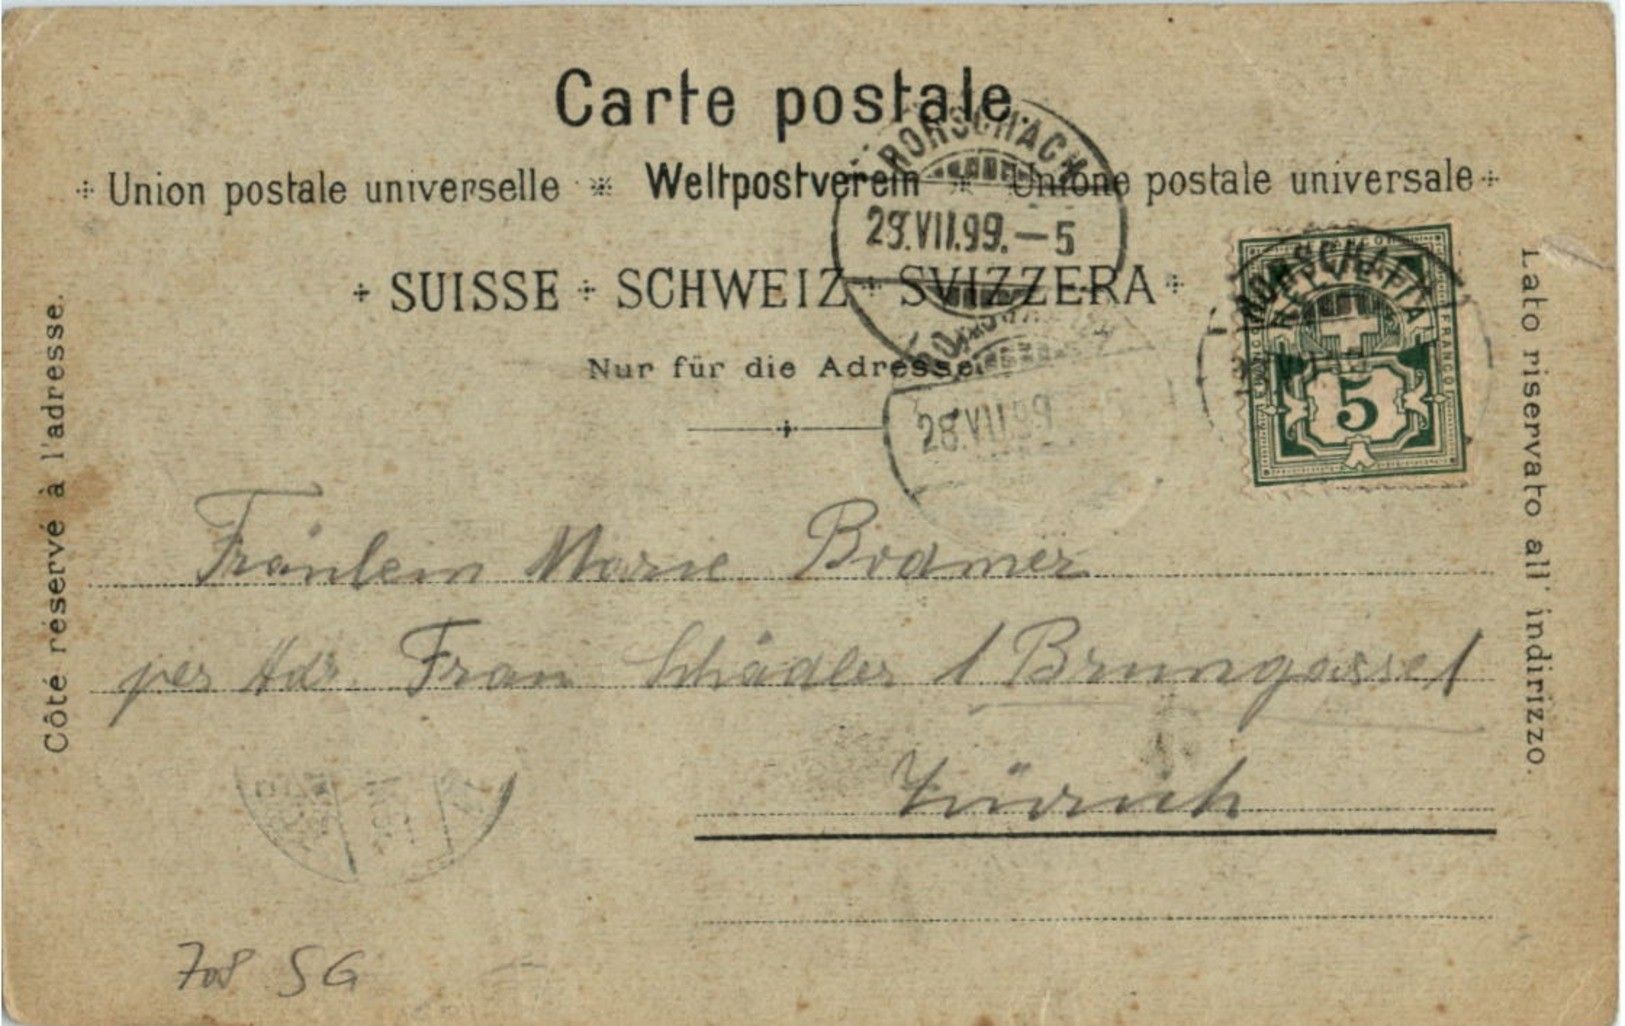 Carte postale.
÷ Union postale universelle ※ Weltpostverein ※ Unione postale universale ÷
÷ SUISSE ÷ SCHWEIZ ÷ SVIZZERA ÷
Nur für die Adresse.
Côté réservé à l'adresse.
Lato riservato all' indirizzo.
RORSCHACH
29.VII.99.—5
28.VII.99 5
RORSCHACH
HELVETIA
FRANCO
5
Fräulein Marie
per Adr. Frau Schädler / Brungasse 1
Zürich
708 SG